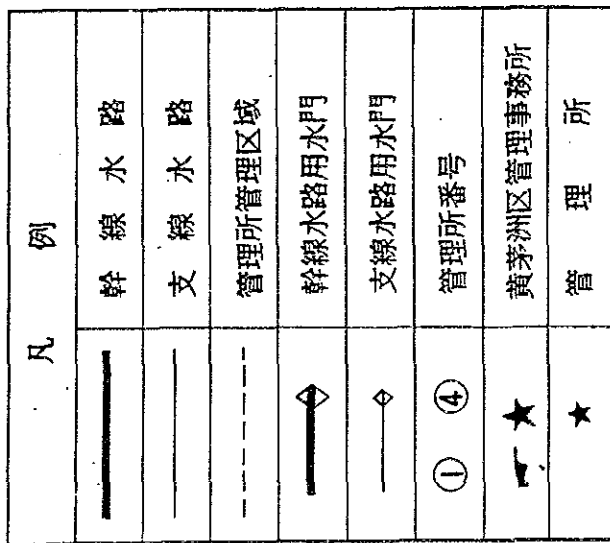 凡例
幹線水路
支線水路
管理所管理区域
幹線水路用水門
支線水路用水門
① ④ 管理所番号
黄茅洲区管理事務所
管理所